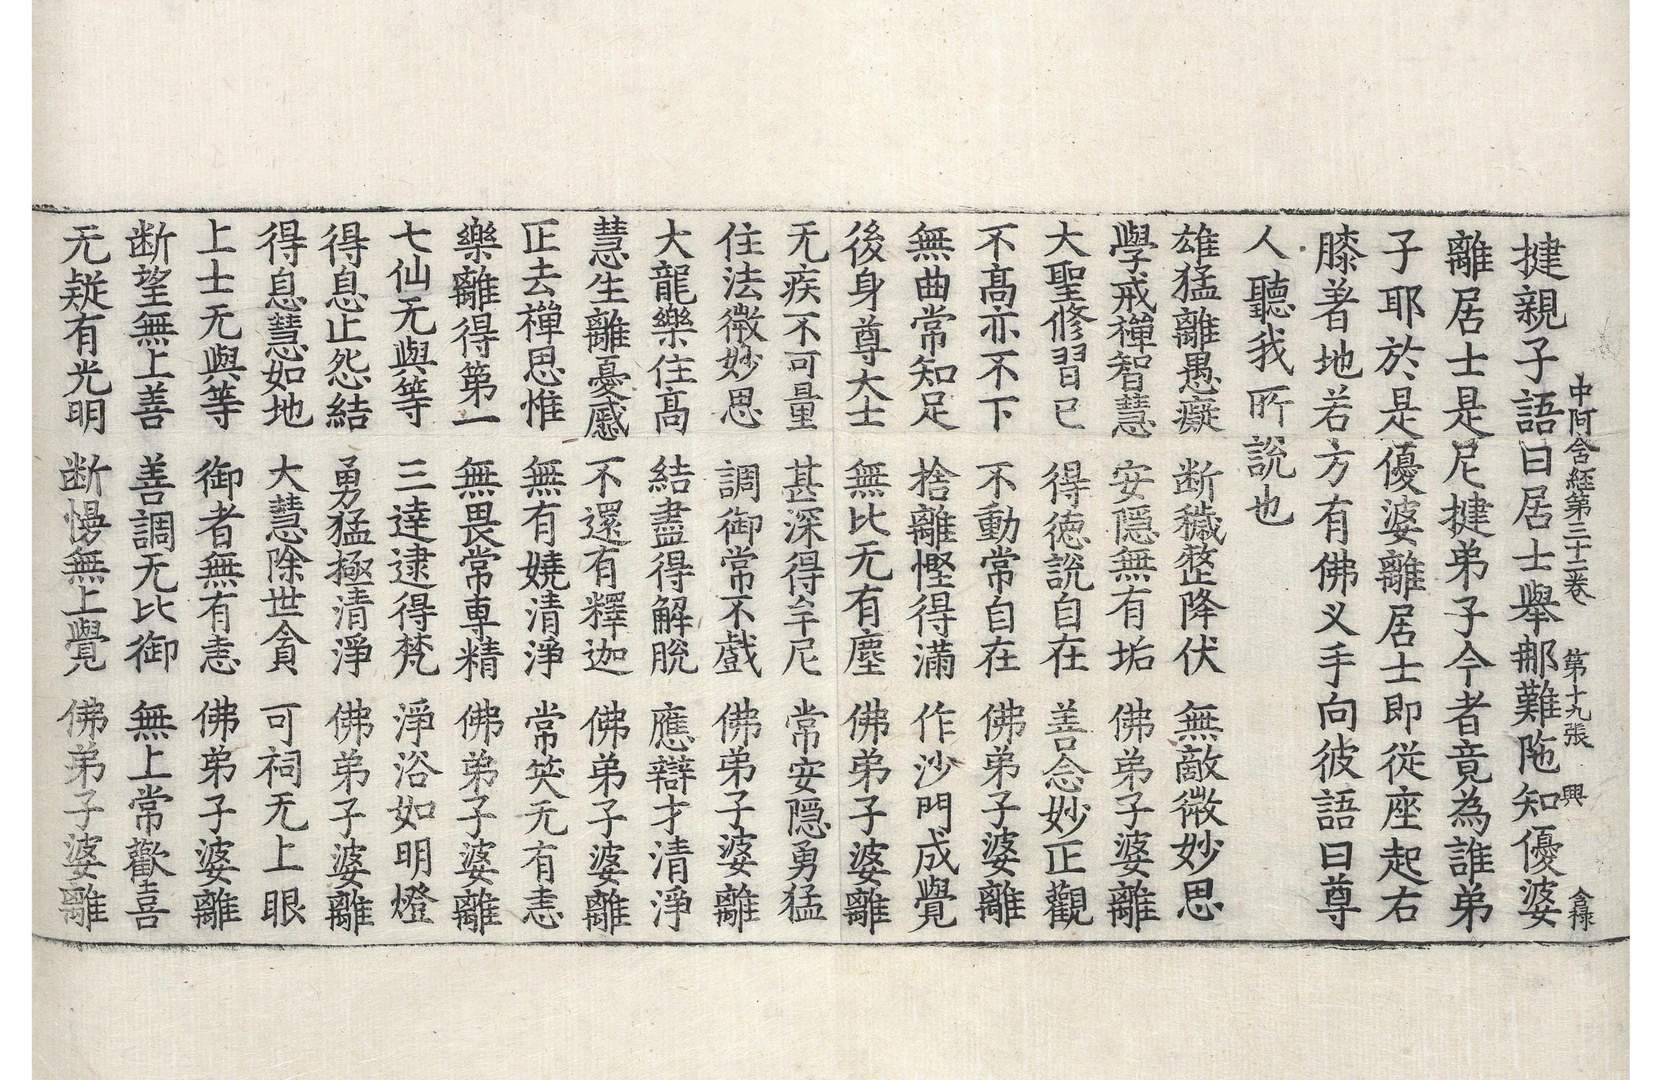 揵親子語曰居士舉那難陁知優婆
中阿含經第三十二卷　第十九張　興
離居士是尼揵弟子今者竟為誰弟
子耶於是優婆離居士即從座起右
膝著地若方有佛叉手向彼語曰尊
人聽我所說也
雄猛離愚癡　断穢整降伏　無敵微妙思
學戒禪智慧　安隱無有垢　佛弟子婆離
大聖修習已　得德說自在　善念妙正觀
不髙亦不下　不動常自在　佛弟子婆離
無曲常知足　捨離慳得滿　作沙門成覺
後身尊大士　無比无有塵　佛弟子婆離
无疾不可量　甚深得牟尼　常安隱勇猛
住法微妙思　調御常不戲　佛弟子婆離
大龍樂住髙　結盡得解脫　應辯才清淨
慧生離憂慼　不還有釋迦　佛弟子婆離
正去禪思惟　無有嬈清淨　常笑无有恚
樂離得第一　無畏常專精　佛弟子婆離
七仙无與等　三達逮得梵　淨浴如明燈
得息止怨結　勇猛極清淨　佛弟子婆離
得息慧如地　大慧除世貪　可祠无上眼
上士无與等　御者無有恚　佛弟子婆離
断望無上善　善調无比御　無上常歡喜
无疑有光明　断慢無上覺　佛弟子婆離